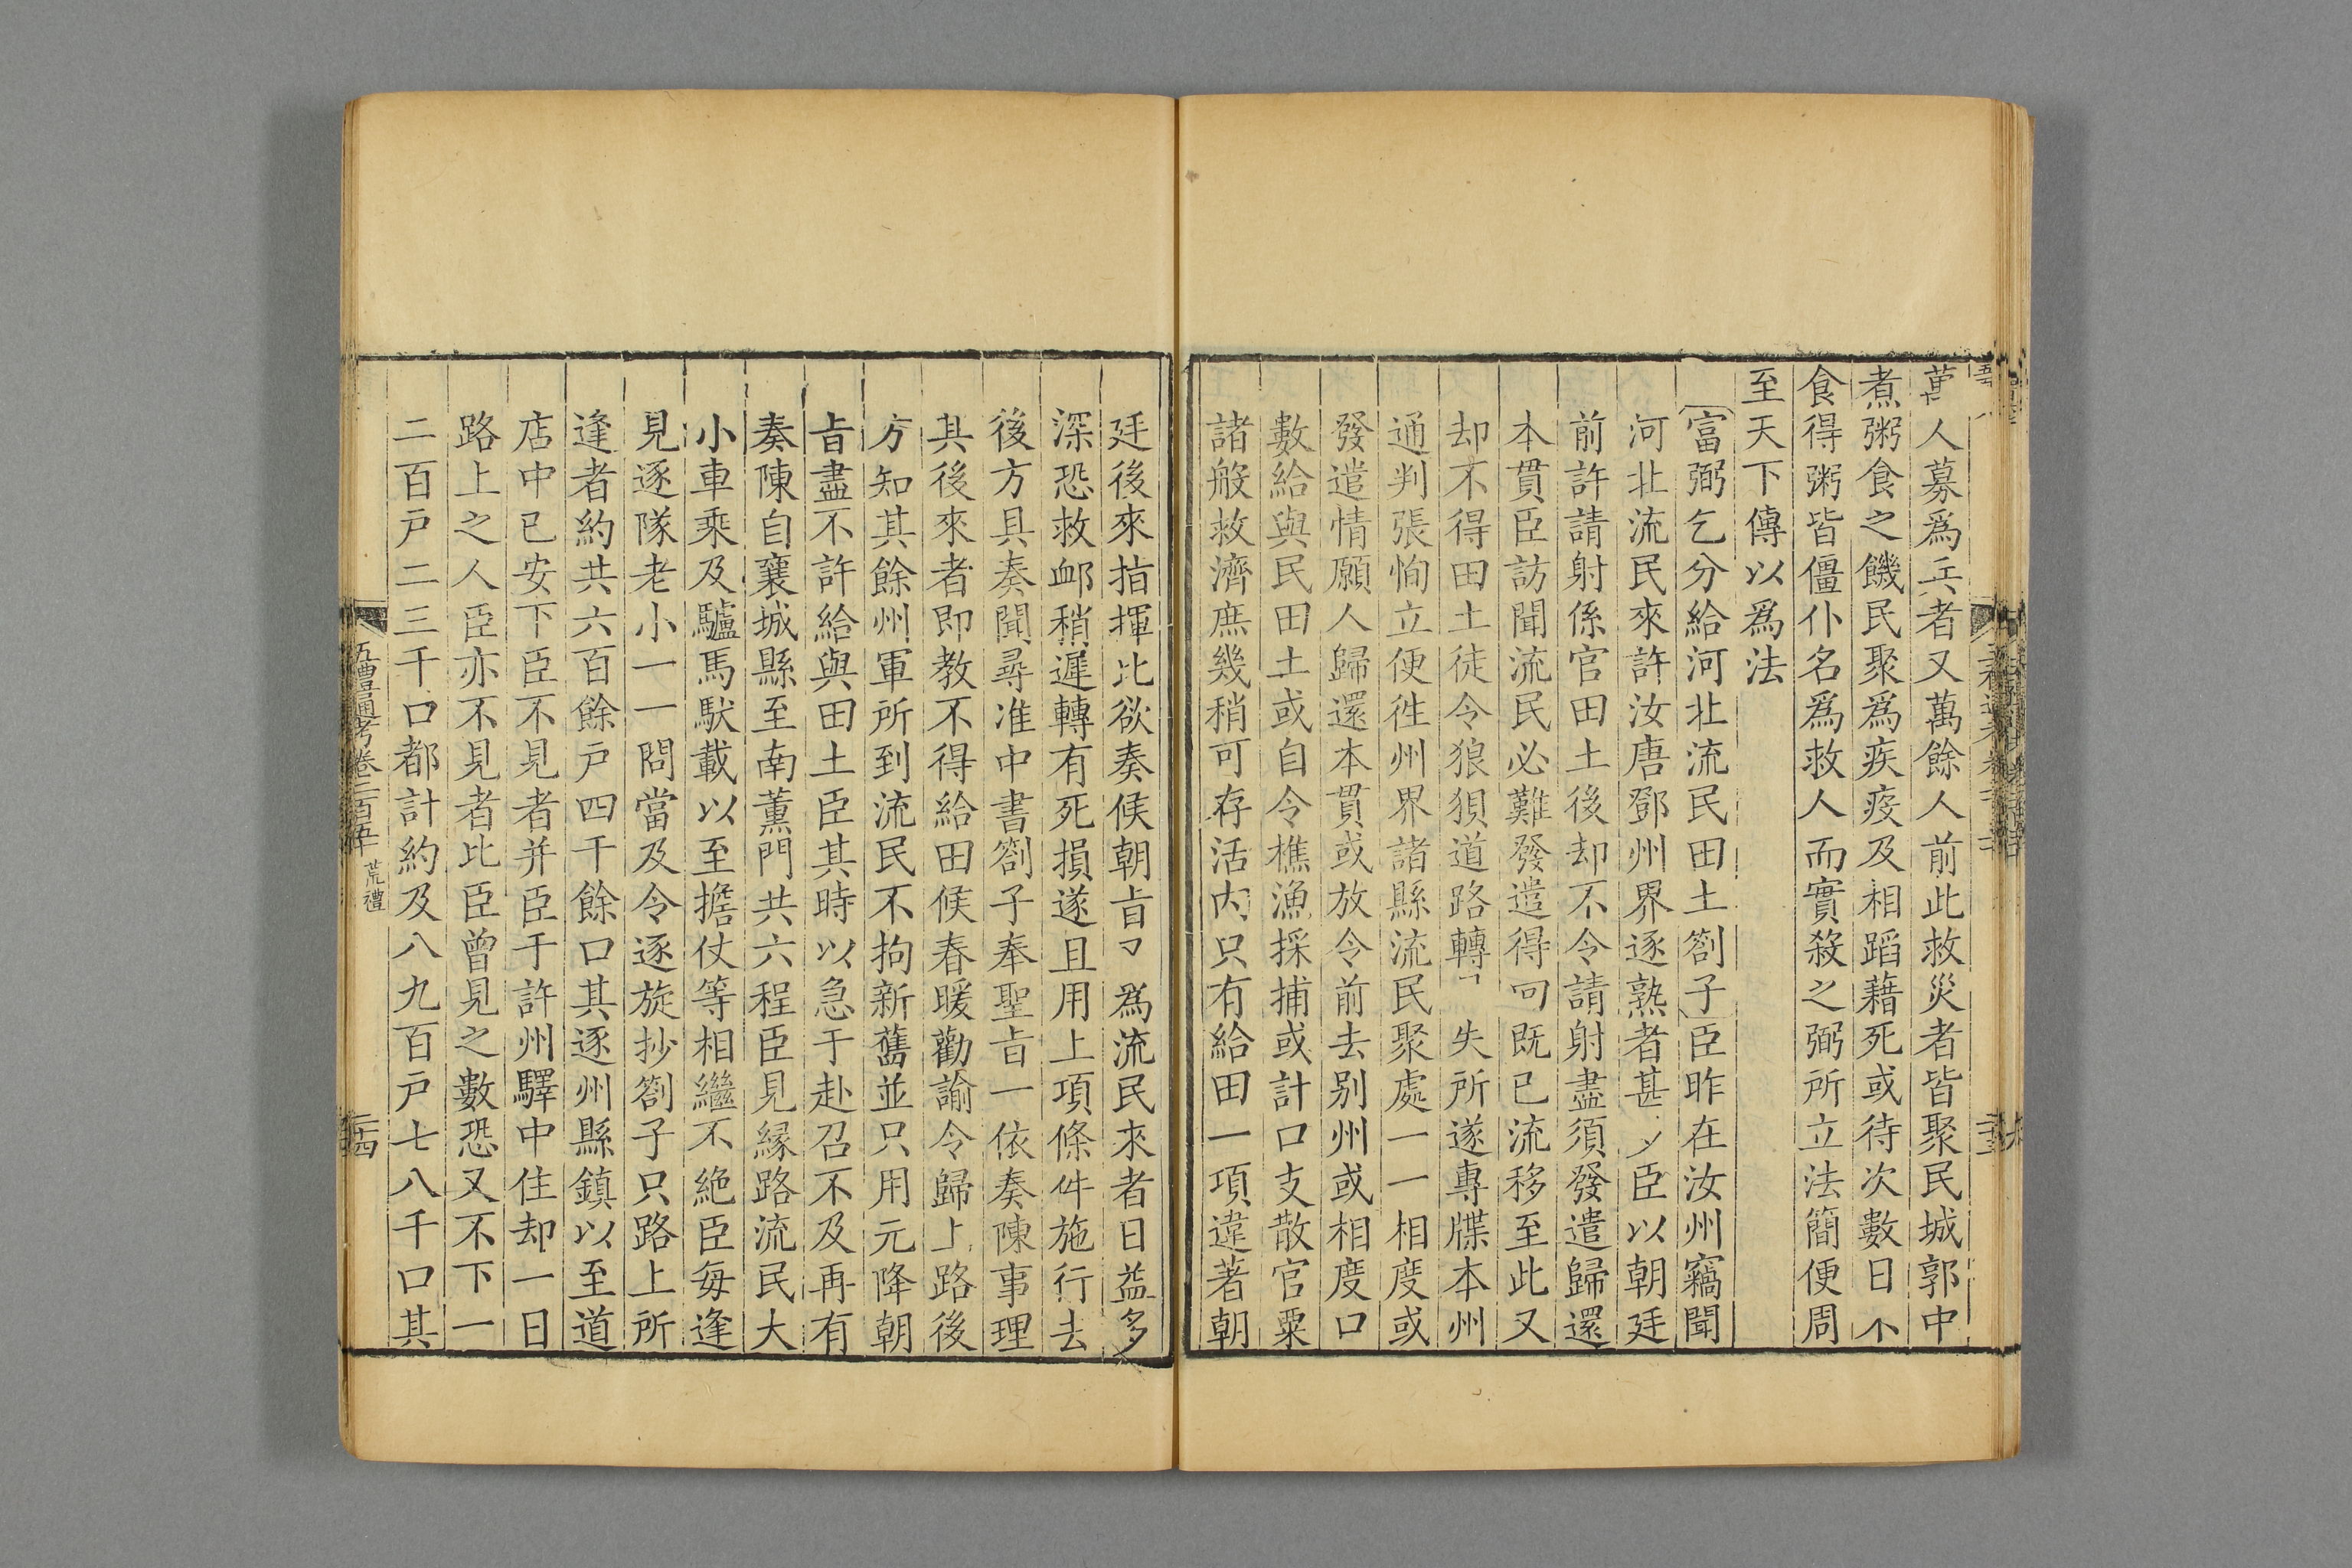 萬人募爲兵者又萬餘人前此救災者皆聚民城郭中
煮粥食之饑民聚爲疾疫及相蹈藉死或待次數日不
食得粥皆僵仆名爲救人而實殺之弼所立法簡便周
至天下傳以爲法
富弼乞分給河北流民田土劄子臣昨在汝州竊聞
河北流民來許汝唐鄧州界逐熟者甚多臣以朝廷
前許請射係官田土後却不令請射盡須發遣歸還
本貫臣訪聞流民必難發遣得回既已流移至此又
却不得田土徒令狼狽道路轉 失所遂專牒本州
通判張恂立便徃州界諸縣流民聚處一一相度或
發遣情願人歸還本貫或放令前去别州或相度口
數給與民田土或自令樵漁採捕或計口支散官粟
諸般救濟庶幾稍可存活内只有給田一項違著朝
廷後來指揮比欲奏候朝旨 爲流民來者日益多
深恐救䘏稍遲轉有死損遂且用上項條件施行去
後方具奏聞尋准中書劄子奉聖旨一依奏陳事理
其後來者即教不得給田候春暖勸諭令歸上路後
方知其餘州軍所到流民不拘新舊並只用元降朝
旨盡不許給與田土臣其時以急于赴召不及再有
奏陳自襄城縣至南薰門共六程臣見緣路流民大
小車乘及驢馬馱載以至擔仗等相繼不絶臣每逢
見逐隊老小一一問當及令逐旋抄劄子只路上所
逢者約共六百餘戸四千餘口其逐州縣鎮以至道
店中已安下臣不見者并臣于許州驛中住却一日
路上之人臣亦不見者比臣曾見之數恐又不下一
二百戸二三千口都計約及八九百戸七八千口其
五禮通考卷二百五十 荒禮
二十四